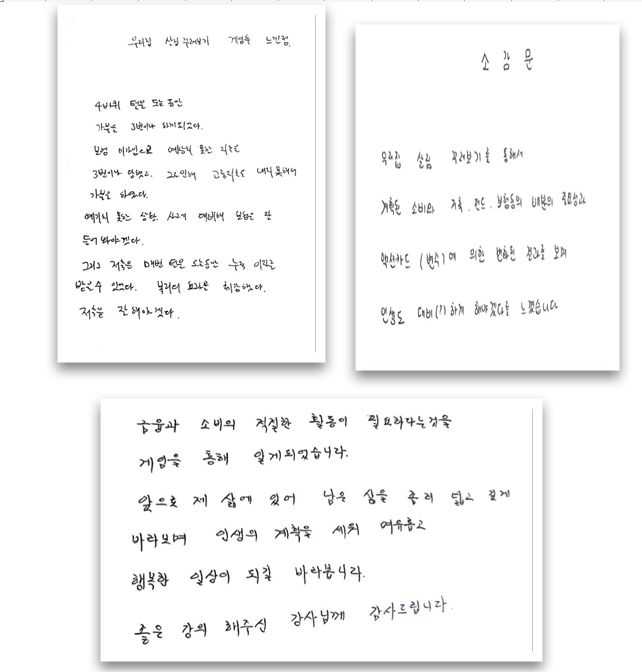 우리집 살림 꾸려보기 게임후 느낀점.
4바퀴 턴을 도는 동안
가불을 3번이나 하게되었다.
보험 미가입으로 예상치 못한 지출을
3번이나 당했고. 그로인해 고정지출도 내지 못해서
가불을 하였다.
예기치 못한 상황. 사고에 대비해 보험은 꼭
들어 놔야겠다.
그리고 저축은 매번 턴을 도는동안 누적 이자를
받을수 있었다. 복리의 효과는 위대했다.
저축을 잘 해야겠다.
소감문
우리집 살림 꾸려보기를 통해서
계획된 소비와 저축, 펀드, 보험등의 배분의 중요성과
액션카드 (변수)에 의한 변화된 결과를 보며
인생도 대비하게 해야겠다를 느꼈습니다
금융과 소비의 적절한 활동이 필요하다는것을
게임을 통해 알게되었습니다.
앞으로 제 삶에 있어 남은 삶을 좀 더 넓고 깊게
바라보며 인생의 계획을 세워 여유롭고
행복한 일상이 되길 바라봅니다.
좋은 강의 해주신 강사님께 감사드립니다.